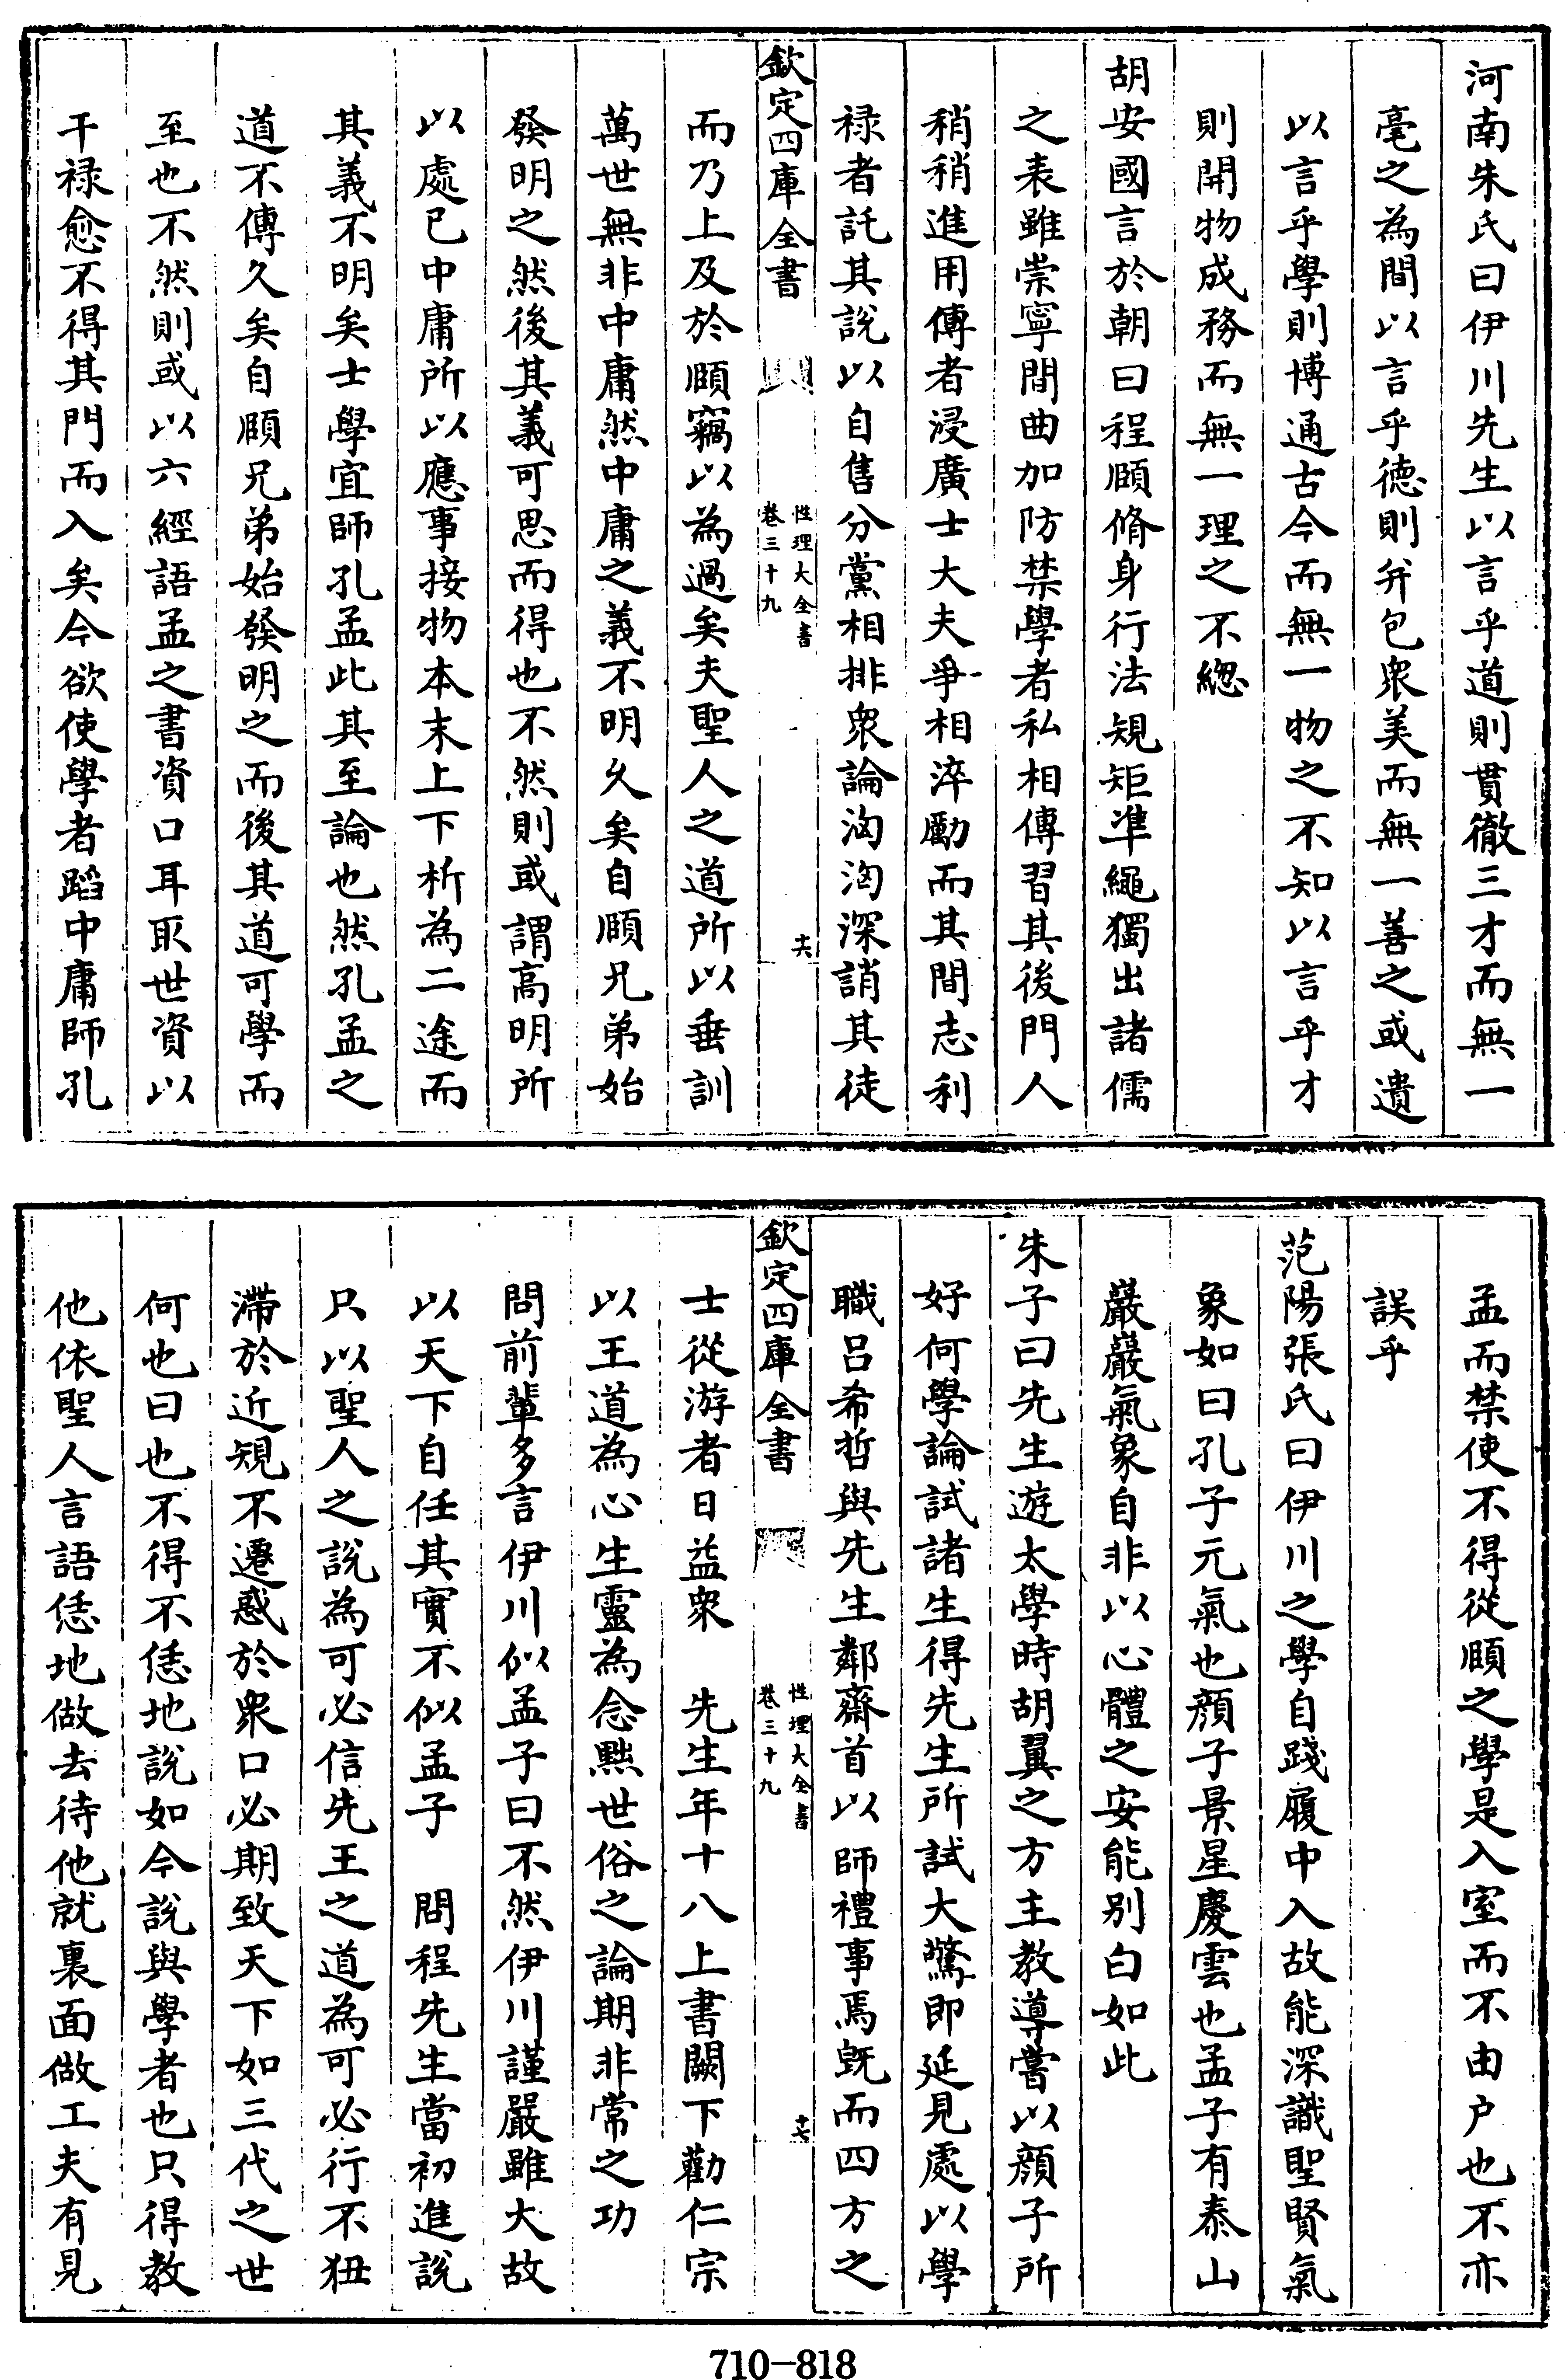 河南朱氏曰伊川先生以言乎道則貫徹三才而無一
毫之為間以言乎德則并包衆美而無一善之或遺
以言乎學則博通古今而無一物之不知以言乎才
則開物成務而無一理之不緫
胡安國言於朝曰程頤脩身行法規矩凖繩獨出諸儒
之表雖崇寧間曲加防禁學者私相傳習其後門人
稍稍進用傳者浸廣士大夫爭相淬勵而其間志利
禄者託其說以自售分黨相排衆論洶洶深誚其徒
欽定四庫全書
性理大全書
卷三十九
十六
而乃上及於頤竊以為過矣夫聖人之道所以垂訓
萬世無非中庸然中庸之義不明久矣自頤兄弟始
發明之然後其義可思而得也不然則或謂高明所
以處已中庸所以應事接物本末上下析為二途而
其義不明矣士學宜師孔孟此其至論也然孔孟之
道不傳久矣自頤兄弟始發明之而後其道可學而
至也不然則或以六經語孟之書資口耳取世資以
干禄愈不得其門而入矣今欲使學者蹈中庸師孔
孟而禁使不得從頤之學是入室而不由户也不亦
誤乎
范陽張氏曰伊川之學自踐履中入故能深識聖賢氣
象如曰孔子元氣也顔子景星慶雲也孟子有泰山
巖巖氣象自非以心體之安能别白如此
朱子曰先生遊太學時胡翼之方主教導嘗以顔子所
好何學論試諸生得先生所試大驚即延見處以學
職吕希哲與先生鄰齋首以師禮事焉既而四方之
欽定四庫全書
性理大全書
卷三十九
十七
士從游者日益衆　先生年十八上書闕下勸仁宗
以王道為心生靈為念黜世俗之論期非常之功
問前輩多言伊川似孟子曰不然伊川謹嚴雖大故
以天下自任其實不似孟子　問程先生當初進說
只以聖人之說為可必信先王之道為可必行不狃
滯於近規不遷惑於衆口必期致天下如三代之世
何也曰也不得不恁地說如今說與學者也只得教
他依聖人言語恁地做去待他就裏面做工夫有見
710-818